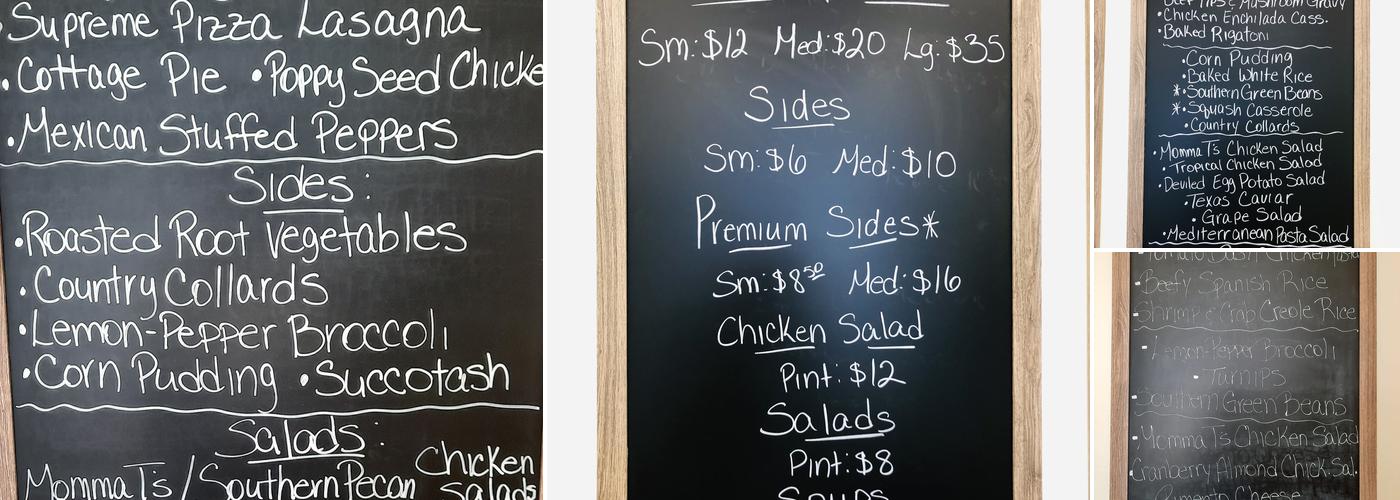 • Supreme Pizza Lasagna
• Cottage Pie • Poppy Seed Chicke
• Mexican Stuffed Peppers
Sides:
• Roasted Root Vegetables
• Country Collards
• Lemon-Pepper Broccoli
• Corn Pudding • Succotash
Salads:
Momma T's / Southern Pecan Chicken Salads
Sm: $12 Med: $20 Lg: $35
Sides
Sm: $6 Med: $10
Premium Sides*
Sm: $8.50 Med: $16
Chicken Salad
Pint: $12
Salads
Pint: $8
Soups
Beef Tips & Mushroom Gravy
• Chicken Enchilada Cass.
• Baked Rigatoni
• Corn Pudding
• Baked White Rice
* • Southern Green Beans
* • Squash Casserole
• Country Collards
• Momma T's Chicken Salad
• Tropical Chicken Salad
• Deviled Egg Potato Salad
• Texas Caviar
• Grape Salad
• Mediterranean Pasta Salad
Tomato Basil Chicken Pasta
• Beefy Spanish Rice
• Shrimp & Crab Creole Rice
• Lemon-Pepper Broccoli
• Turnips
• Southern Green Beans
• Momma T's Chicken Salad
• Cranberry Almond Chick. Sal.
Pimento Cheese